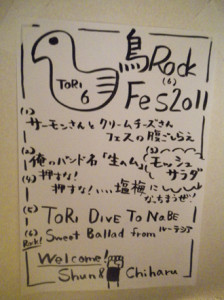 鳥Rock
(6)
TORI
6
Fes2011
(1)
サーモンさんとクリームチーズさん
フェスの腹ごしらえ
(2)
俺のバンド名「生ハム」
(3)
モッシュ
サラダ
(4)
押すな!
押すな!いい塩梅に
なっちまうぜ!
(5)
TORI DIVE TO NABE
(6)
Rock!
Sweet Ballad from ルーテシア
Welcome!
Shun & Chiharu